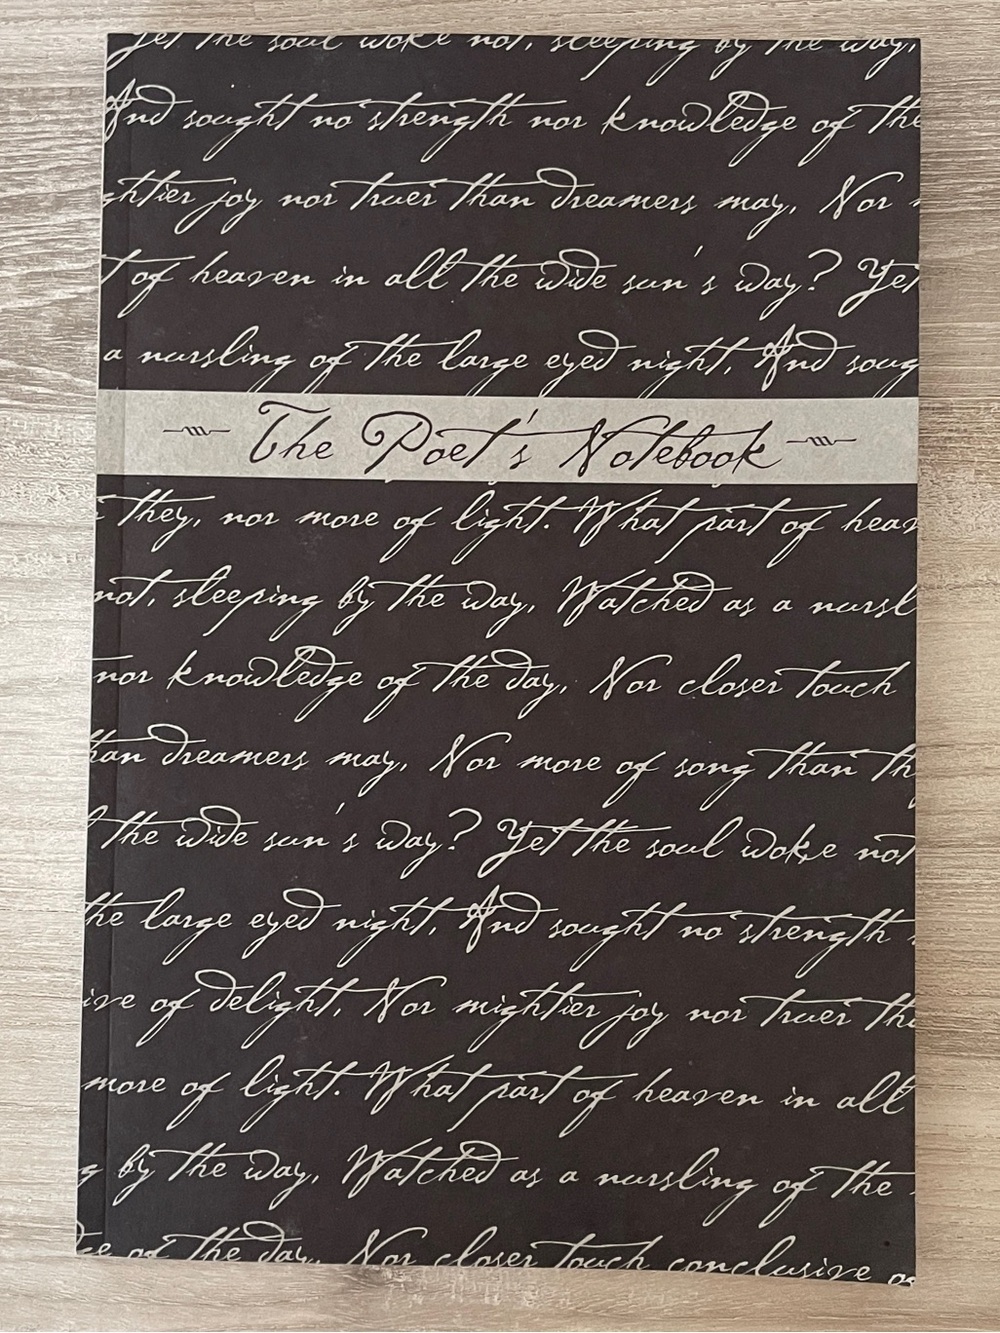 Yet the soul woke not, sleeping by the way,
And sought no strength nor knowledge of the
ghtier joy nor truer than dreamers may, Nor
t of heaven in all the wide sun's way? Yet
a nursling of the large eyed night, And soug
The Poet's Notebook
they, nor more of light. What part of heav
not, sleeping by the way, Watched as a nursl
nor knowledge of the day, Nor closer touch
han dreamers may, Nor more of song than th
the wide sun's way? Yet the soul woke not
the large eyed night, And sought no strength
ive of delight, Nor mightier joy nor truer tha
more of light. What part of heaven in all
g by the way, Watched as a nursling of the
ge of the day, Nor closer touch conclusive of